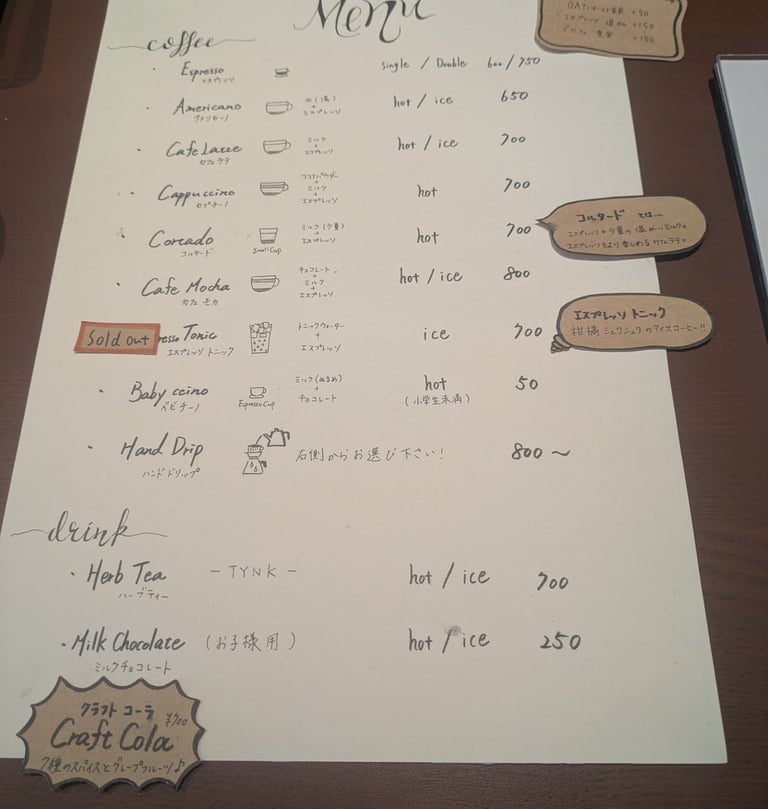 Menu
OAT(オーツ)変更 +50
エスプレッソ 追加 +150
変更 +150
coffee
Espresso single / Double 600 / 750
エスプレッソ
Americano 水(湯) + エスプレッソ hot / ice 650
アメリカーノ
Cafe Latte ミルク + エスプレッソ hot / ice 700
カフェ ラテ
Cappuccino ココアパウダー + ミルク + エスプレッソ hot 700
カプチーノ
Cortado Small Cup ミルク(少量) + エスプレッソ hot 700
コルタード
コルタード とは...
エスプレッソ+少量の温かいミルク。
エスプレッソをより楽しめるカフェラテ。
Cafe Mocha チョコレート + ミルク + エスプレッソ hot / ice 800
カフェ モカ
Sold out
resso Tonic トニックウォーター + エスプレッソ ice 700
エスプレッソ トニック
エスプレッソ トニック
柑橘 シュワシュワ のアイスコーヒー!!
Baby ccino Espresso Cup ミルク(ぬるめ) + チョコレート hot 50
ベビチーノ (小学生未満)
Hand Drip 右側からお選び下さい! 800 〜
ハンドドリップ
drink
Herb Tea - TYNK - hot / ice 700
ハーブティー
Milk Chocolate (お子様用) hot / ice 250
ミルクチョコレート
クラフト コーラ ¥700
Craft Cola
7種のスパイスとグレープフルーツ♪